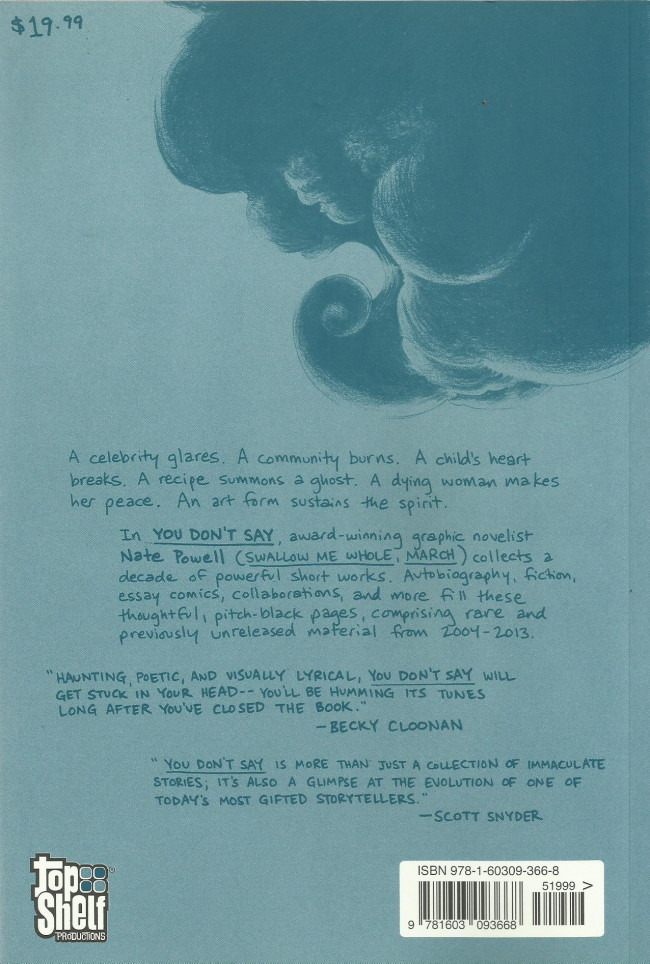 $19.99
A celebrity glares. A community burns. A child's heart
breaks. A recipe summons a ghost. A dying woman makes
her peace. An art form sustains the spirit.
In YOU DON'T SAY, award-winning graphic novelist
Nate Powell (SWALLOW ME WHOLE, MARCH) collects a
decade of powerful short works. Autobiography, fiction,
essay comics, collaborations, and more fill these
thoughtful, pitch-black pages, comprising rare and
previously unreleased material from 2004-2013.
"HAUNTING, POETIC, AND VISUALLY LYRICAL, YOU DON'T SAY WILL
GET STUCK IN YOUR HEAD--YOU'LL BE HUMMING ITS TUNES
LONG AFTER YOU'VE CLOSED THE BOOK."
—BECKY CLOONAN
"YOU DON'T SAY IS MORE THAN JUST A COLLECTION OF IMMACULATE
STORIES; IT'S ALSO A GLIMPSE AT THE EVOLUTION OF ONE OF
TODAY'S MOST GIFTED STORYTELLERS."
—SCOTT SNYDER
Top
Shelf
PRODUCTIONS
®
ISBN 978-1-60309-366-8
51999 >
9 781603 093668